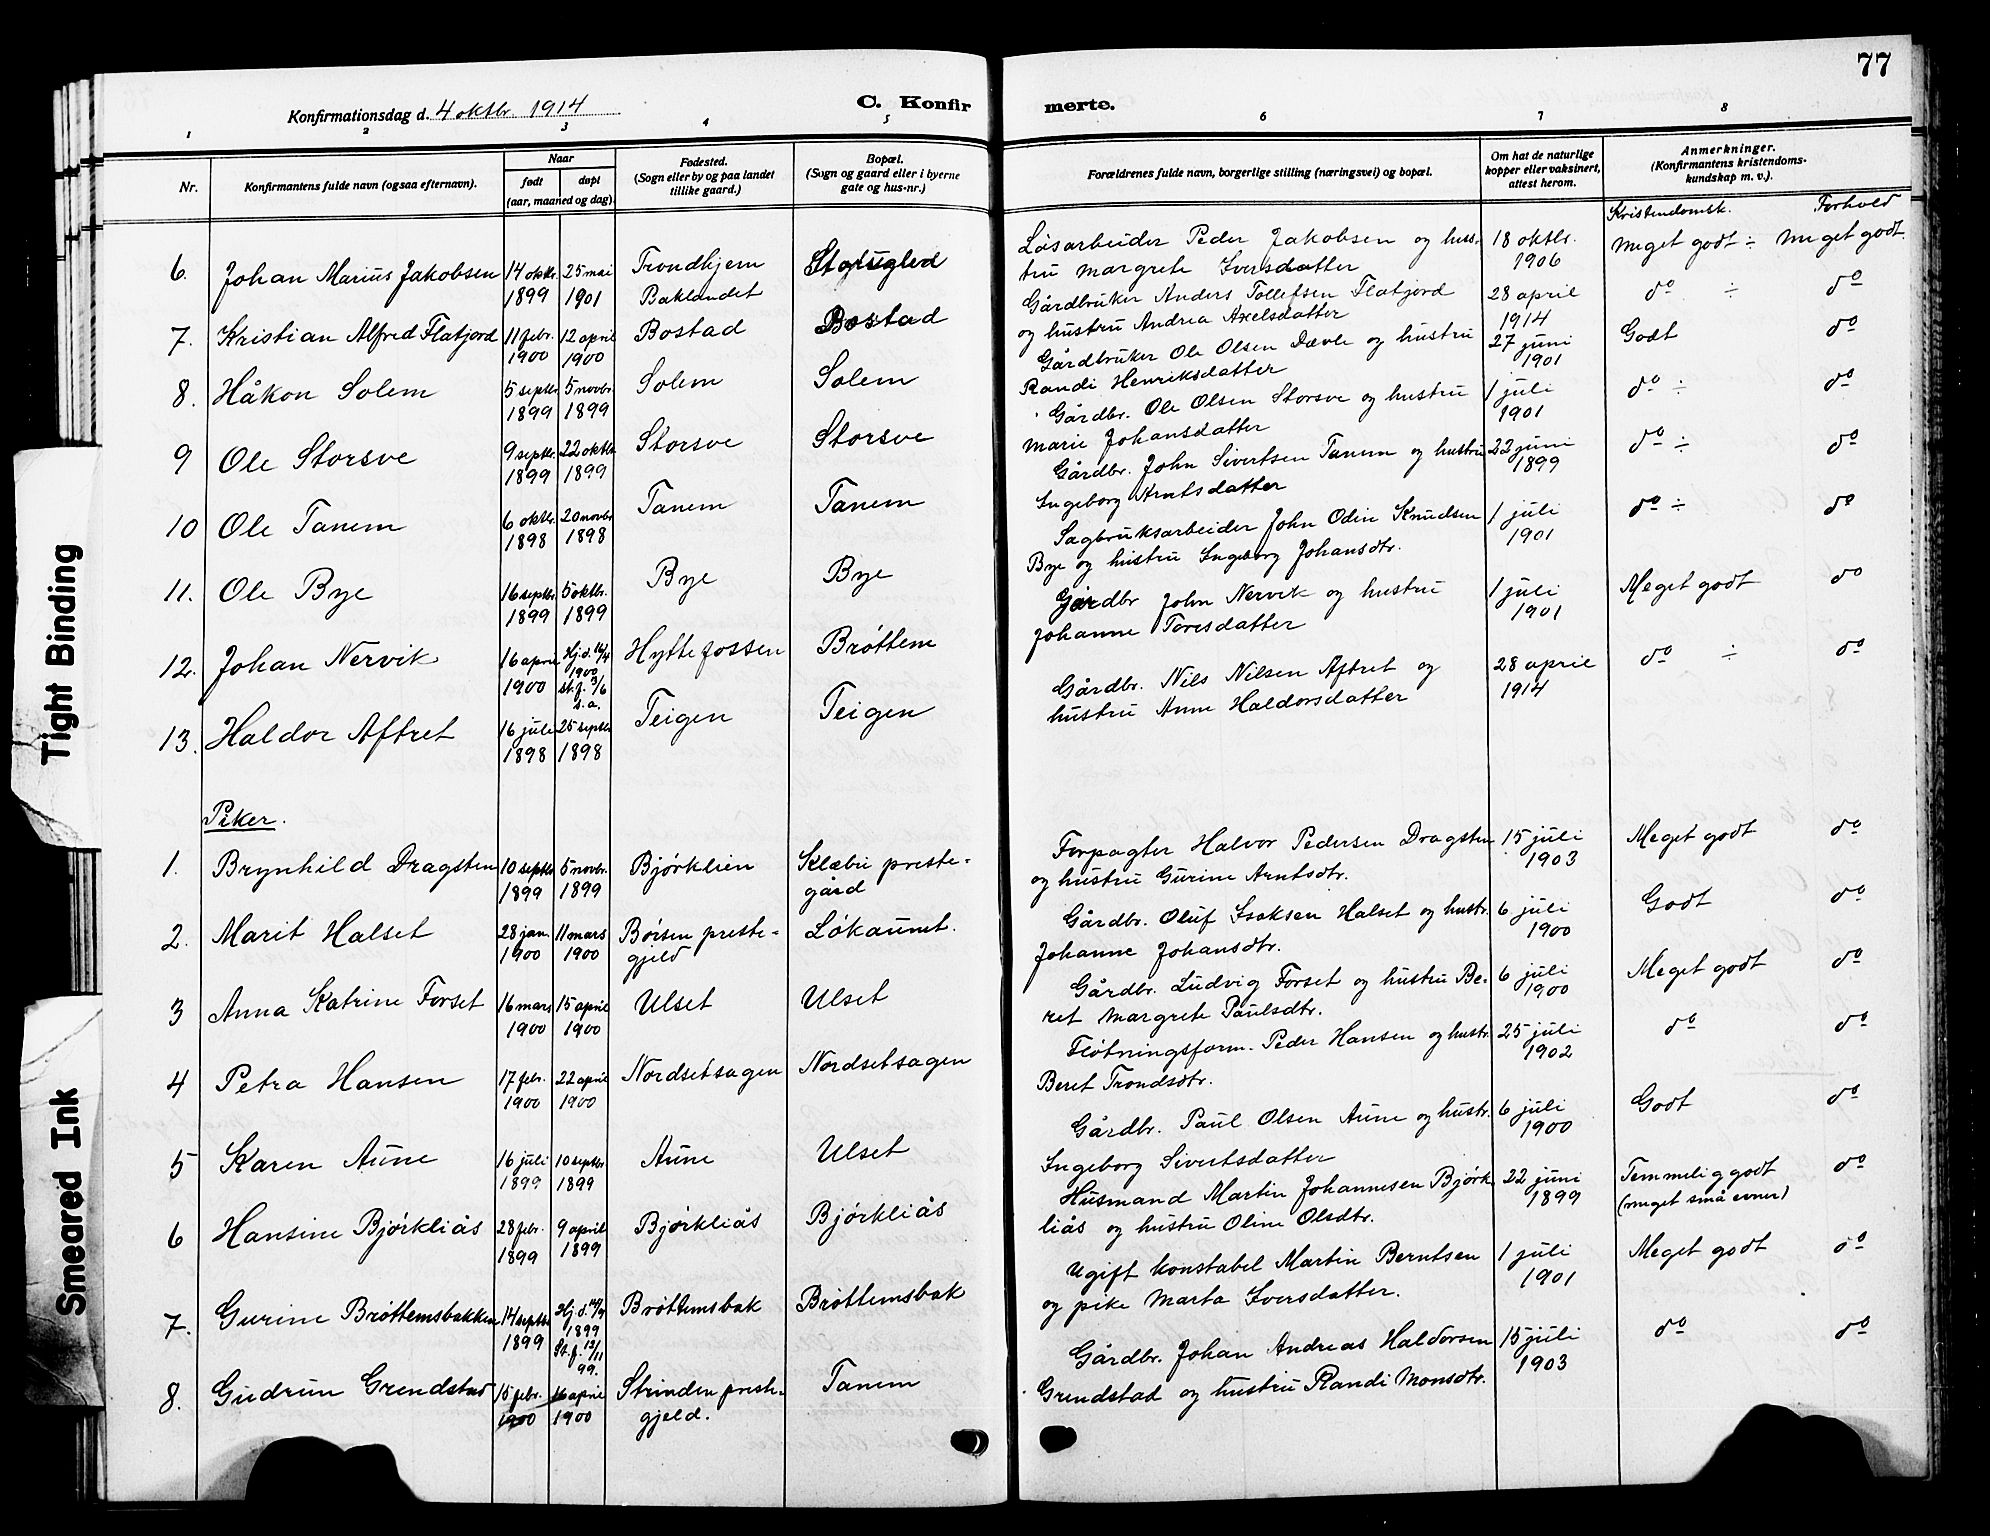 77
Konfirmationsdag d. 4 oktbr. 1914
C. Konfir
merte.
1 2 3 4 5 6 7 8
Nr.
Konfirmantens fulde navn (ogsaa efternavn).
Naar
født
døpt
(aar, maaned og dag).
Fødested.
(Sogn eller by og paa landet
tillike gaard.)
Bopæl.
(Sogn og gaard eller i byerne
gate og hus-nr.)
Forældrenes fulde navn, borgerlige stilling (næringsvei) og bopæl.
Om hat de naturlige
kopper eller vaksinert,
attest herom.
Anmerkninger.
(Konfirmantens kristendoms-
kundskap m. v.).
Kristendomsk. Forhold
6. Johan Marius Jakobsen 14 oktbr. 1899 25 mai 1901 Trondhjem Baklandet
Løsarbeider Peder Jakobsen og hus-
tru Margrete Iversdatter 18 oktbr. 1906 Meget godt ÷ Meget godt
7. Kristian Alfred Flatjord 11 febr. 1900 12 april 1900 Bostad Bostad
Gårdbruker Anders Tollefsen Flatjord
og hustru Andrea Axelsdatter 28 april 1914 do ÷ do
8. Håkon Solem 5 septbr. 1899 5 novbr. 1899 Solem Solem
Gårdbruker Ole Olsen Dævle og hustru
Randi Henriksdatter 27 juni 1901 Godt do
9 Ole Storsve 9 septbr. 1899 22 oktbr. 1899 Storsve Storsve
Gårdbr. Ole Olsen Storsve og hustru
Marie Johansdatter 1 juli 1901 do ÷ do
10 Ole Tanem 6 oktbr. 1898 20 novbr. 1898 Tanem Tanem
Gårdbr. John Sivertsen Tanem og hustru
Ingeborg Arntsdatter 22 juni 1899 do ÷ do
11. Ole Bye 16 septbr. 1899 5 oktbr. 1899 Bye Bye
Sagbruksarbeider John Odin Knudsen
Bye og hustru Ingeborg Johansdtr. 1 juli 1901 do ÷ do
12. Johan Nervik 16 april 1900 Hj.d. 16/4 1900 st.f. 3/6 s.a. Hyttefossen Brøttem
Gårdbr John Nervik og hustru
Johanne Toresdatter 1 juli 1901 Meget godt do
13. Haldor Aftret 16 juli 1898 25 septbr 1898 Teigen Teigen
Gårdbr. Nils Nilsen Aftret og
hustru Anne Haldorsdatter 28 april 1914 do ÷ do
Piker.
1. Brynhild Dragsten 10 septbr 1899 5 novbr. 1899 Bjørklien Klæbu preste-
gård
Forpagter Halvor Pedersen Dragsten
og hustru Gurine Arntsdtr. 15 juli 1903 Meget godt do
2. Marit Halset 28 jan. 1900 11 mars 1900 Børsen preste-
gjeld Løkaunet.
Gårdbr. Oluf Isaksen Halset og hustr.
Johanne Johansdtr. 6 juli 1900 Godt do
3 Anna Katrine Forset 16 mars 1900 15 april 1900 Ulset Ulset
Gårdbr. Ludvig Forset og hustru Be-
ret Margrete Paulsdtr. 6 juli 1900 Meget godt do
4 Petra Hansen 17 febr. 1900 22 april 1900 Nordsetsagen Nordsetsagen
Fløtningsform. Peder Hansen og hustr.
Beret Trondsdtr. 25 juli 1902 do do
5 Karen Aune 16 juli 1899 10 septbr 1899 Aune Ulset
Gårdbr. Paul Olsen Aune og hustr.
Ingeborg Sivertsdatter 6 juli 1900 Godt do
6 Hansine Bjørkliås 28 febr. 1899 9 april 1899 Bjørkliås Bjørkliås
Husmand Martin Johannesen Bjørk-
liås og hustru Oline Olsdtr. 22 juni 1899 Temmelig godt do
(meget små evner)
7. Gurine Brøttemsbakken 14 septbr 1899 Hj.d. 1899 St.f. 13/11 99. Brøttemsbak Brøttemsbak
Ugift konstabel Martin Berntsen
og pike Marta Iversdatter. 1 juli 1901 Meget godt do
8. Gudrun Grendstad 15 febr. 1900 16 april 1900 Strinden preste-
gjeld. Tanem
Gårdbr. Johan Andreas Haldorsen
Grendstad og hustru Randi Monsdtr. 15 juli 1903 do do
Tight Binding
Smeared Ink